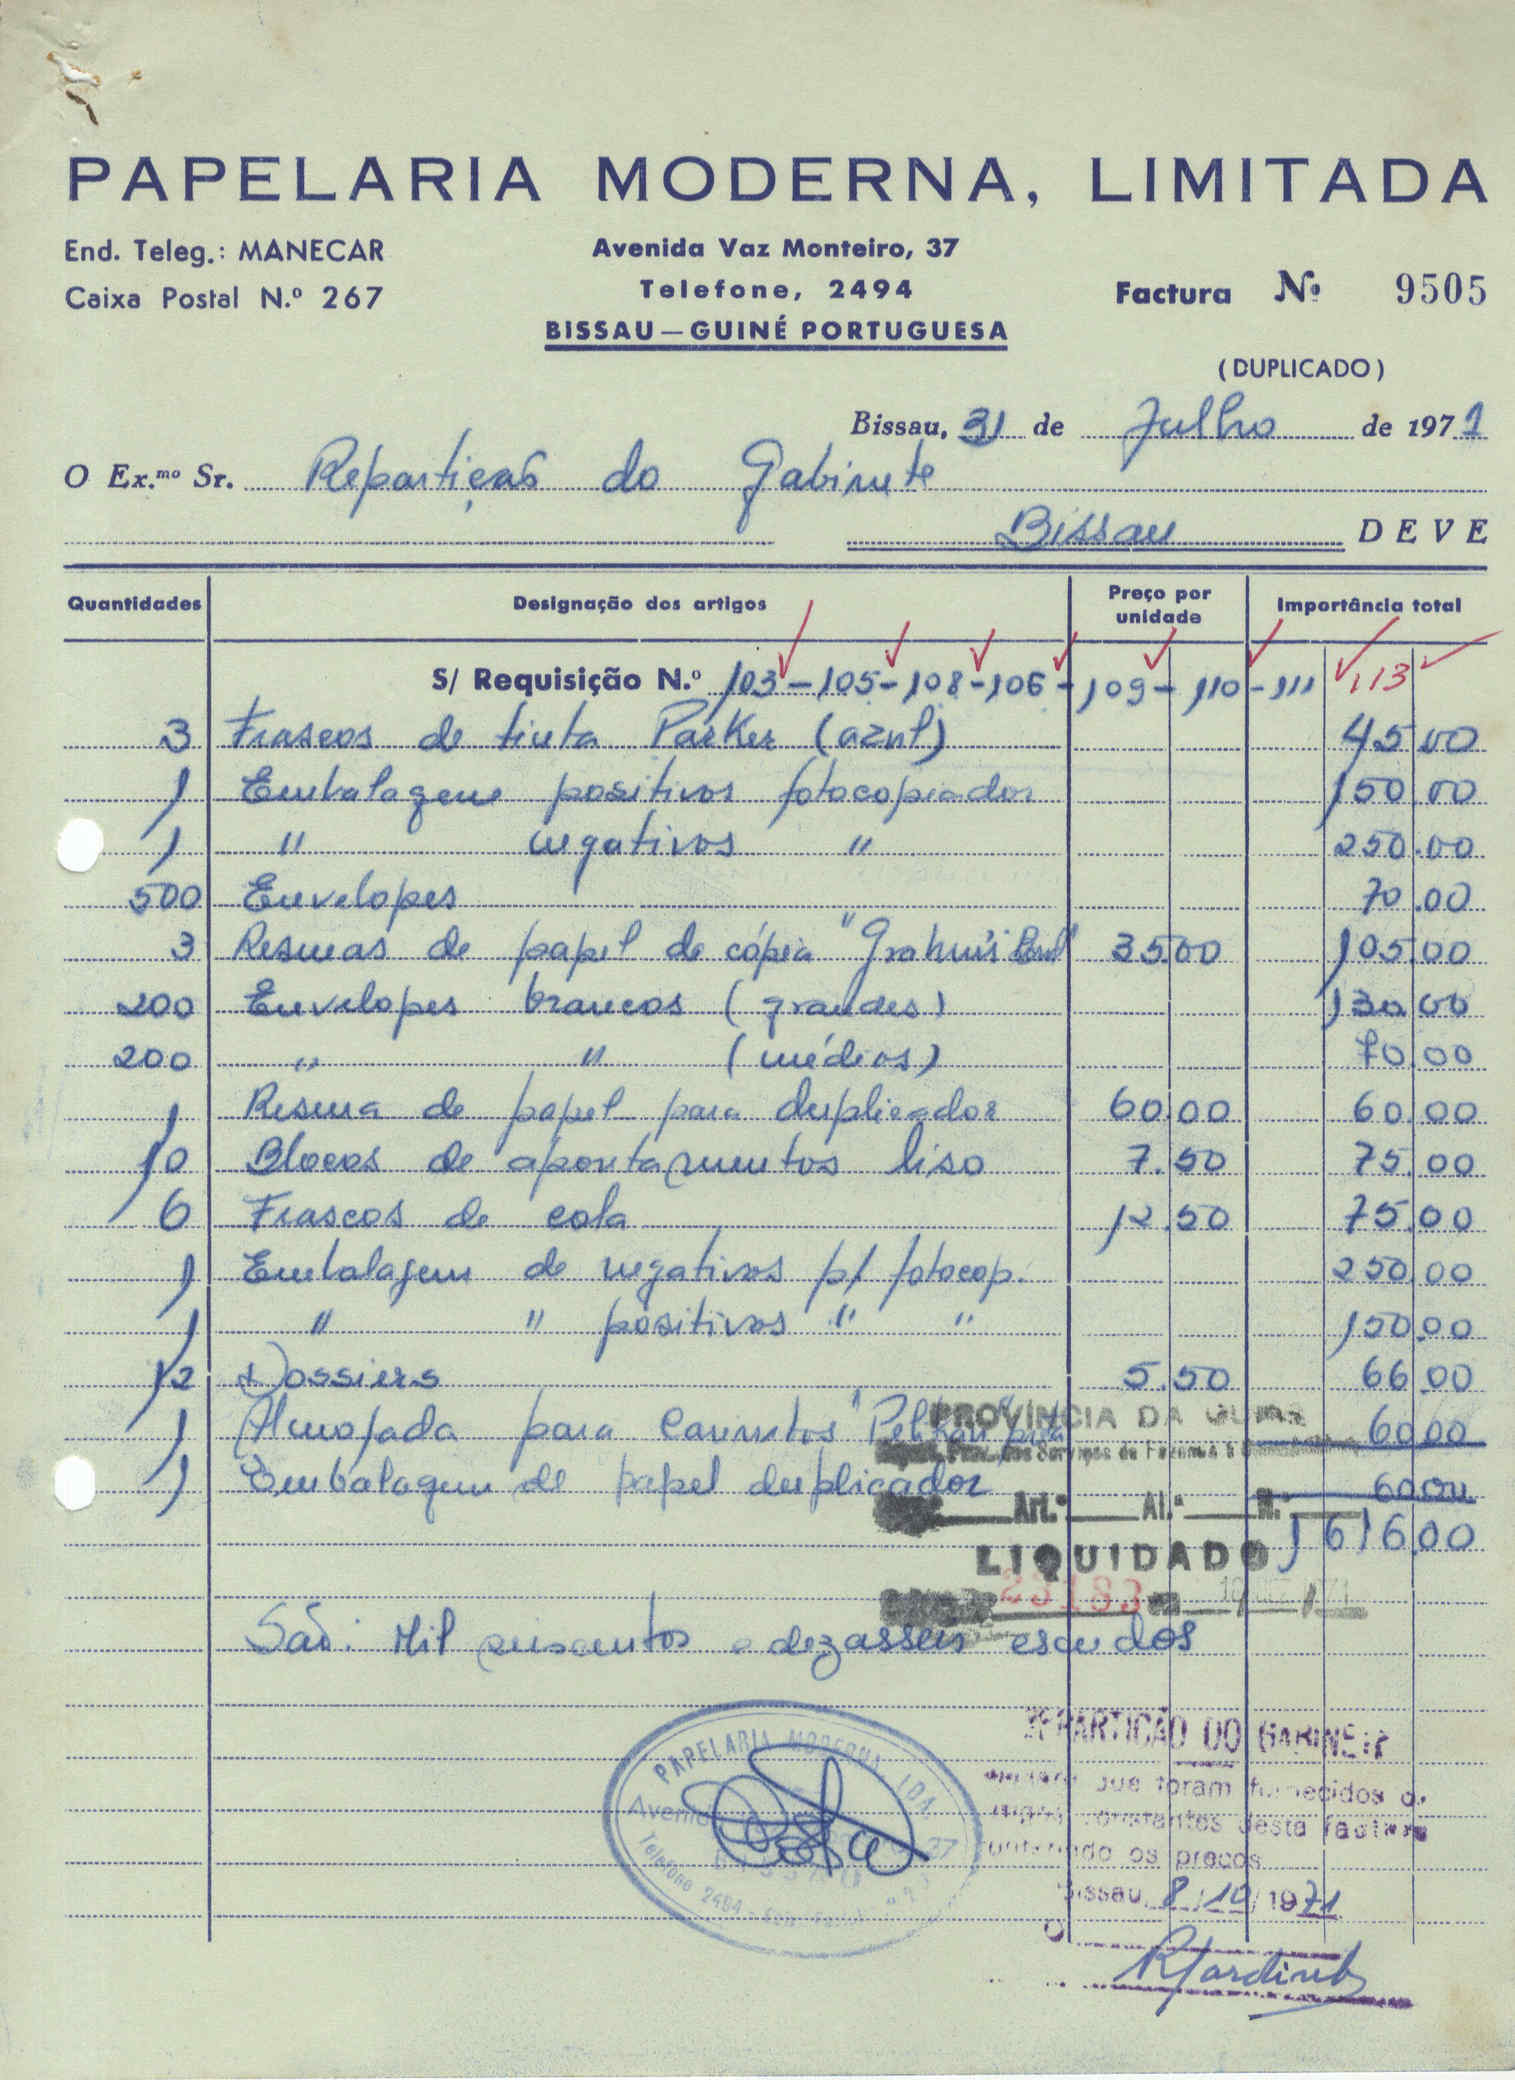 PAPELARIA MODERNA, LIMITADA
End. Teleg.: MANECAR
Caixa Postal N.º 267
Avenida Vaz Monteiro, 37
Telefone, 2494
BISSAU — GUINÉ PORTUGUESA
Factura Nº 9505
(DUPLICADO)
Bissau, 31 de Julho de 1971
O Ex.mo Sr. Repartição do Gabinete
Bissau DEVE
Quantidades Designação dos artigos Preço por unidade Importância total
S/ Requisição N.º 103 - 105 - 108 - 106 - 109 - 110 - 111 113
3 Frascos de tinta Parker (azul) 45.00
1 Embalagem positivos fotocopiador 150.00
1 " negativos " 250.00
500 Envelopes 70.00
3 Resmas de papel de cópia 35.00 105.00
200 Envelopes brancos (grandes) 130.00
200 " " (médios) 70.00
1 Resma de papel para duplicador 60.00 60.00
10 Blocos de apontamentos liso 7.50 75.00
6 Frascos de cola 12.50 75.00
1 Embalagem de negativos p/ fotocop. 250.00
1 " " positivos " " 150.00
12 Dossiers 5.50 66.00
1 Almofada para carimbos "Pelikan" preta 60.00
1 Embalagem de papel duplicador 60.00
1616.00
PROVÍNCIA DA GUINÉ
dos Serviços de Fazenda
Art.º Al.ª N.º
LIQUIDADO
23183 em
São: Mil seiscentos e dezasseis escudos
PAPELARIA MODERNA LDA.
37
Telefone 2494
REPARTIÇÃO DO GABINETE
que foram fornecidos os
artigos constantes desta factura
os preços
Bissau, 8/10/1971
O